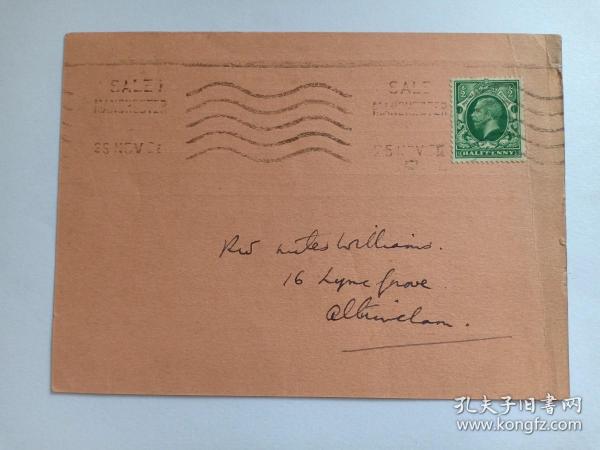 SALE
MANCHESTER
25 NOV
SALE
MANCHESTER
25 NOV
HALFPENNY
Williams.
16 Lyme Grove
Altrincham.
孔夫子旧书网
www.kongfz.com